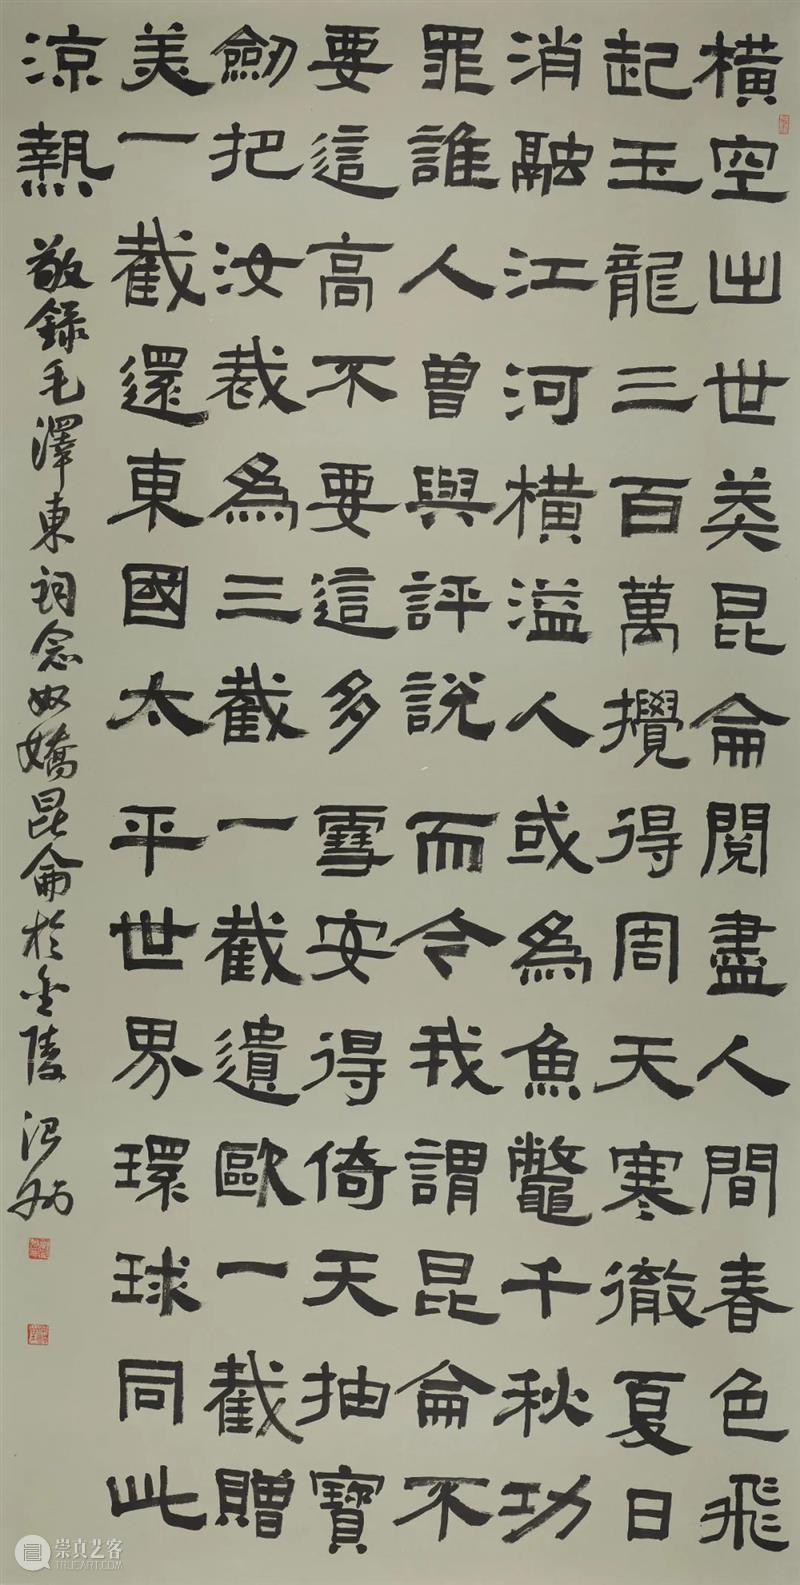 橫空出世莽昆侖閱盡人間春色飛
起玉龍三百萬攪得周天寒徹夏日
消融江河橫溢人或爲魚鼈千秋功
罪誰人曾與評說而今我謂昆侖不
要這高不要這多雪安得倚天抽寶
劍把汝裁爲三截一截遺歐一截贈
美一截還東國太平世界環球同此
涼熱
敬錄毛澤東詞念奴嬌昆侖於金陵
崇真艺客
TRUEART.COM